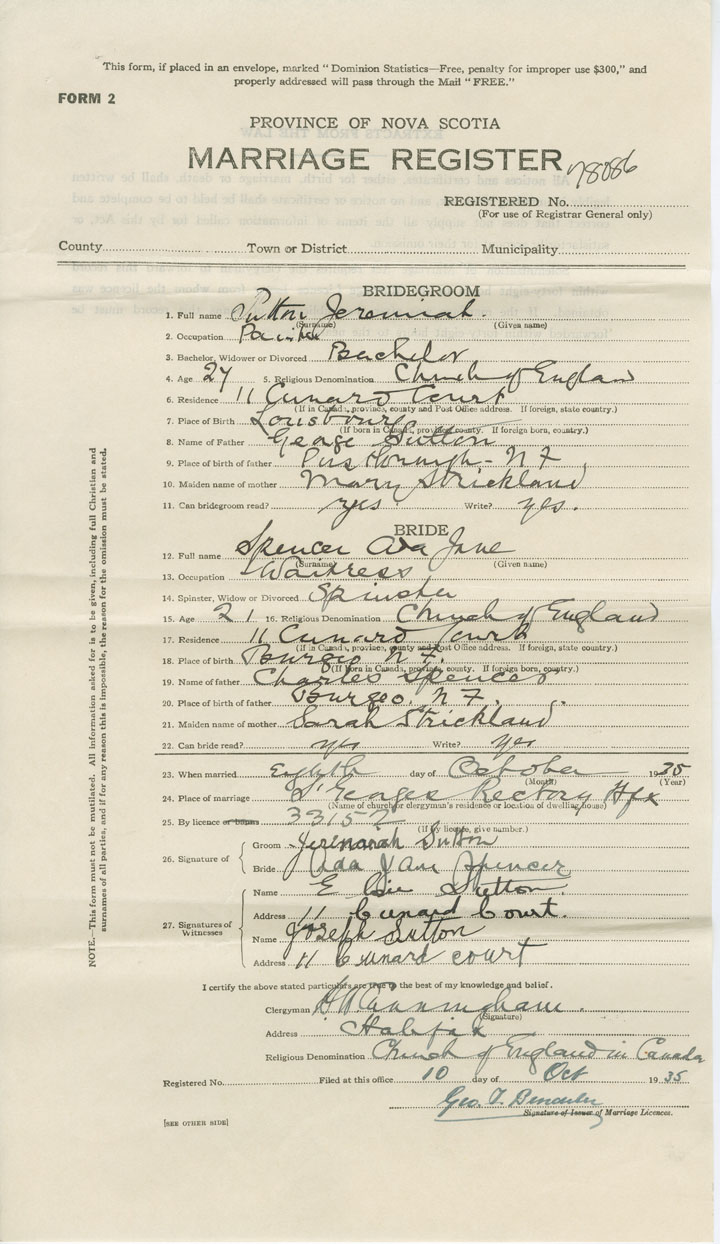 This form, if placed in an envelope, marked "Dominion Statistics—Free, penalty for improper use $300," and
properly addressed will pass through the Mail "FREE."
FORM 2
PROVINCE OF NOVA SCOTIA
MARRIAGE REGISTER
78086
REGISTERED No.
(For use of Registrar General only)
County Town or District Municipality
BRIDEGROOM
1. Full name Sutton Jeremiah.
(Surname) (Given name)
2. Occupation Painter
3. Bachelor, Widower or Divorced Bachelor
4. Age 27 5. Religious Denomination Church of England
6. Residence 11 Cunard Court
(If in Canada, province, county and Post Office address. If foreign, state country.)
7. Place of Birth Louisbourg
(If born in Canada, province, county. If foreign born, country.)
8. Name of Father George Sutton
9. Place of birth of father N F
10. Maiden name of mother Mary Strickland
11. Can bridegroom read? yes. Write? yes.
BRIDE
12. Full name Spencer Ada Jane
(Surname) (Given name)
13. Occupation Waitress
14. Spinster, Widow or Divorced Spinster
15. Age 21 16. Religious Denomination Church of England
17. Residence 11 Cunard Court
(If in Canada, province, county and Post Office address. If foreign, state country.)
18. Place of birth Burgeo N F.
(If born in Canada, province, county. If foreign born, country.)
19. Name of father Charles Spencer
20. Place of birth of father Burgeo. N F.
21. Maiden name of mother Sarah Strickland
22. Can bride read? yes Write? yes
23. When married Eighth day of October 1935
(Month) (Year)
24. Place of marriage St Georges Rectory Hfx
(Name of church or clergyman's residence or location of dwelling house)
25. By licence or banns 33152
(If by licence, give number.)
26. Signature of
Groom Jerimarah Sutton
Bride Ada Jane Spencer
27. Signatures of Witnesses
Name Elsie Sutton.
Address 11 Cunard Court.
Name Joseph Sutton
Address 11 Cunard court
I certify the above stated particulars are true to the best of my knowledge and belief.
Clergyman Cunningham.
(Signature)
Address Halifax
Religious Denomination Church of England in Canada
Registered No. Filed at this office 10 day of Oct 1935
Geo. T.
Signature of Issuer of Marriage Licences.
[SEE OTHER SIDE]
NOTE.—This form must not be mutilated. All information asked for is to be given, including full Christian and
surnames of all parties, and if for any reason this is impossible, the reason for the omission must be stated.